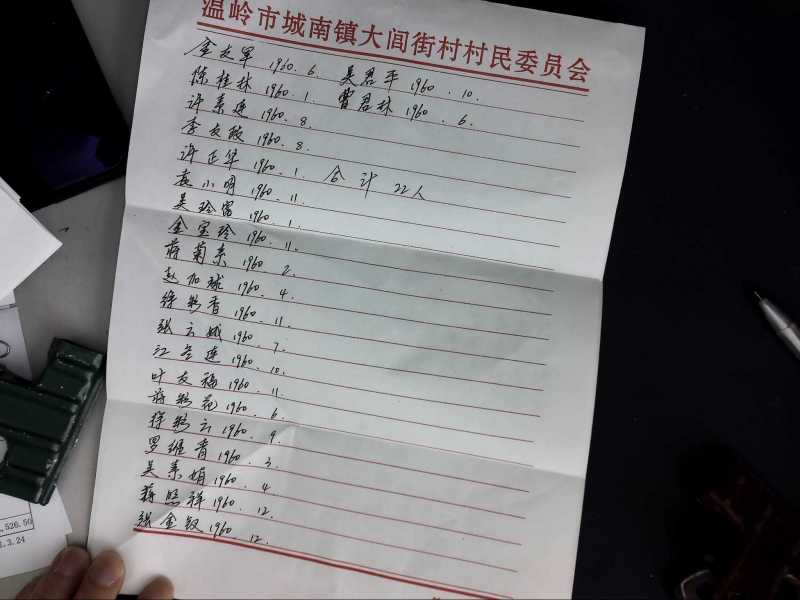 温岭市城南镇大闾街村村民委员会
金友军 1960.6. 吴君平 1960.10.
陈桂林 1960.1. 曹君林 1960.6.
许素连 1960.8.
李友 1960.8.
许正华 1960.1. 合计 22人
袁小明 1960.11.
吴玲富 1960.1.
金宝玲 1960.11.
蒋菊素 1960.2.
赵加球 1960.4.
徐 香 1960.11.
张云娥 1960.7.
江兰连 1960.10.
叶友福 1960.11.
蒋 花 1960.6.
徐 云 1960.9.
罗 青 1960.3.
吴素娟 1960.4.
蒋照祥 1960.12.
张金钗 1960.12.
,526.50
.3.24